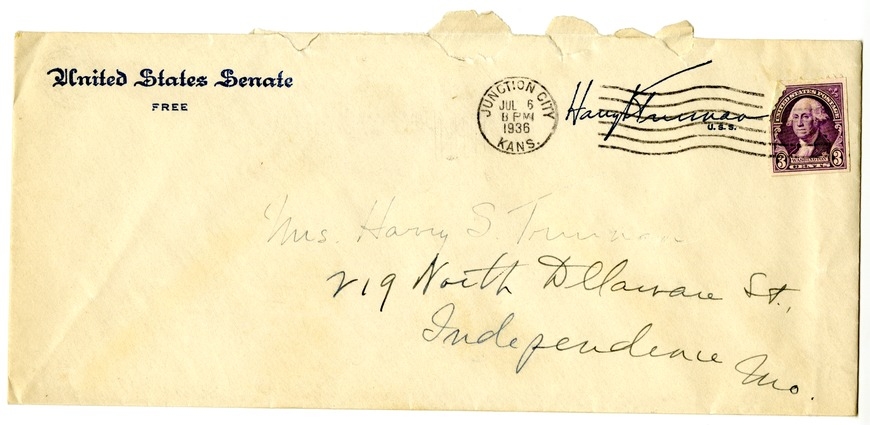 United States Senate
FREE
JUNCTION CITY
JUL 6
8 PM
1936
KANS.
Harry S Truman
U.S.S.
UNITED STATES POSTAGE
3 WASHINGTON 3
CENTS
Mrs. Harry S. Truman
219 North Delaware St.,
Independence
Mo.